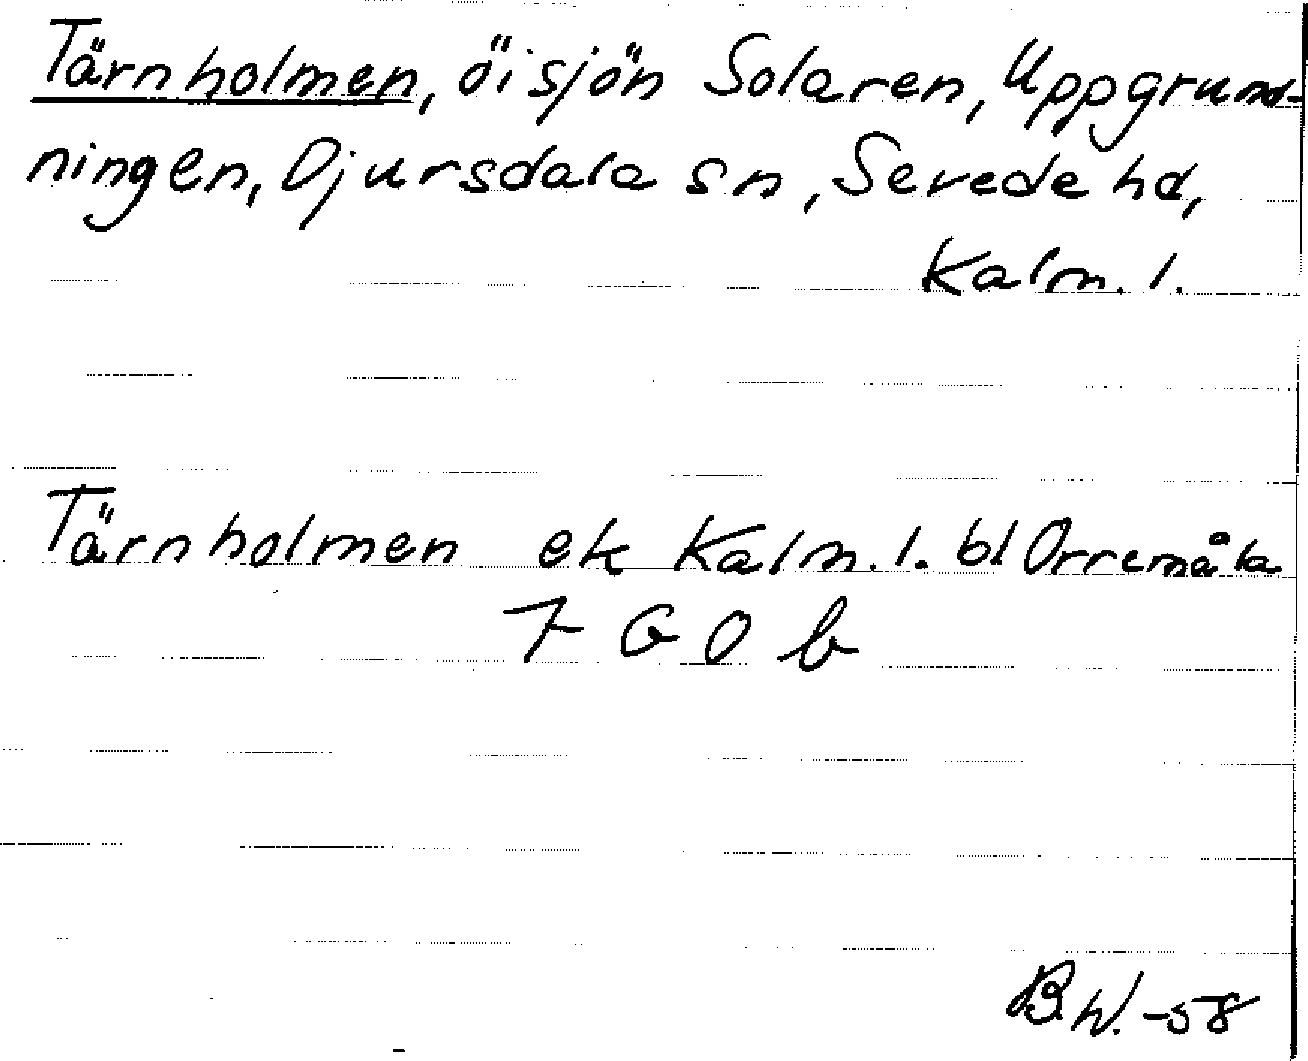 Tärnholmen, ö i sjön Solaren, Uppgrund-
ningen, Djursdala sn, Sevede hd,
Kalm. l.
Tärnholmen ek Kalm. l. bl Orremåla
7 G 0 b
B.W. -58